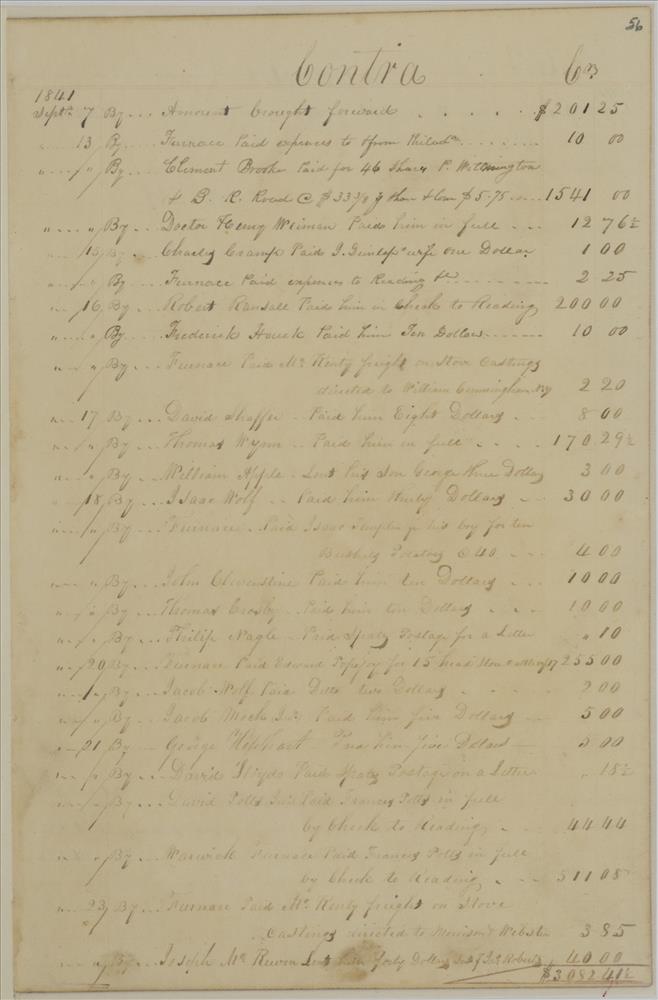 56
Contra Crs
1841
Septr 7 By ... Amount brought forward . . . . . $201 25
" 13 By ... Furnace Paid expenses to & from Philada ....... 10 00
" " " By ... Clement Brooke Paid for 46 Shares P. Wilmington
& B. R. Road @ $33 3/8 $5.75 ... 1541 00
" " " By ... Doctor Henry Weiman Paid him in full ... 12 76½
" 15 By ... Charles Cramp Paid J. Dunlap's wife one Dollar 1 00
" " " By Furnace Paid expenses to Reading &c ........ 2 25
" 16 By ... Robert Ransall Paid him in Check to Reading 200 00
" " " By Frederick Houck Paid him Ten Dollars ...... 10 00
" " " By ... Furnace Paid Mc Kenty freight on Stove Castings
directed to William Cunningham 2 20
" 17 By ... David Shaffer .. Paid him Eight Dollars .. 8 00
" " " By ... Thomas Wynn .. Paid him in full . . . . 170 29½
" " " By ... William Apple .. Lent his Son George three Dollars 3 00
" 18 By ... Isaac Wolf .. Paid him thirty Dollars .. 30 00
" " " By ... Furnace .. Paid Isaac Templin his boy for ten
Bushels Potatoes @ 40 ... 4 00
" " " By ... John Clevenstine Paid him ten Dollars ... 10 00
" " " By ... Thomas Crosby .. Paid him ten Dollars . . . 10 00
" " " By ... Philip Nagle .. Paid Postage for a Letter " 10
" 20 By ... Furnace Paid Edward for 15 head 255 00
" " " By ... Jacob Wolf Paid Ditto two Dollars . . . . 2 00
" " " By ... Jacob Mock Paid him five Dollars ... 5 00
" 21 By ... George Hiphart — Paid him five Dollars — 5 00
" " " By ... David Lloyd Paid Postage on a Letter " 18½
" " " By ... David Potts Paid Francis Potts in full
by Check to Reading . . . 44 44
" " " By ... Warwick Furnace Paid Francis Potts in full
by Check to Reading . . . 511 08
" 23 By ... Furnace Paid Mc Kenty freight on Stove
Castings directed to Morrison & Webster 3 85
" " " By ... Joseph Mc Kewen Lent him forty Dollars 40 00
$3082 41½